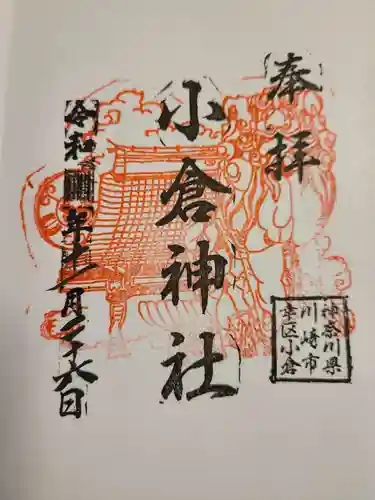 奉拝
神奈川県
川崎市
幸区小倉
小倉神社
令和 年十一月二十六日